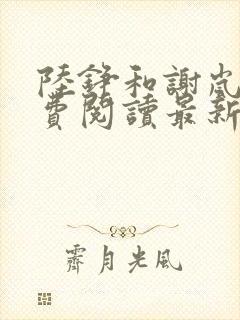 陸錚和謝嵐
費閱讀最新
霽月光風